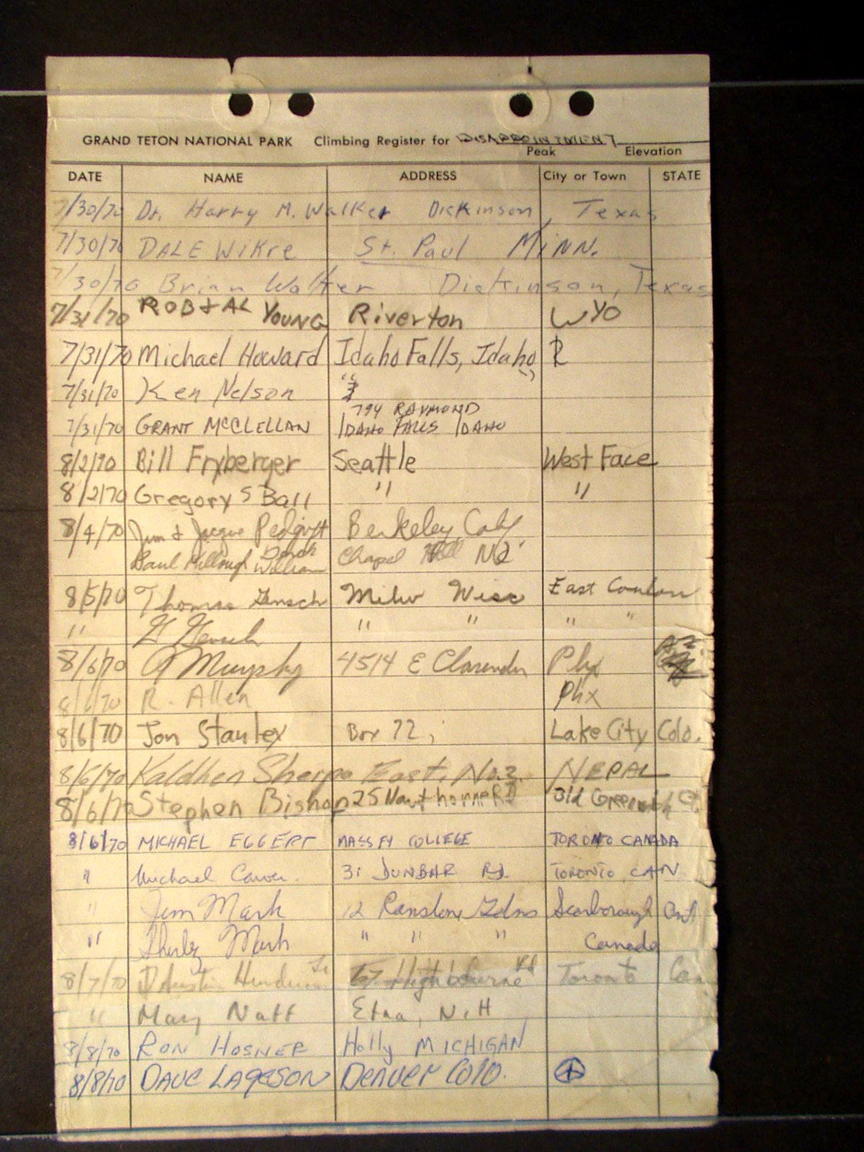 GRAND TETON NATIONAL PARK Climbing Register for DISAPPOINTMENT
Peak Elevation
DATE NAME ADDRESS City or Town STATE
7/30/70 Dr. Harry M. Walker Dickinson, Texas
7/30/70 DALE WiKre St. Paul MINN.
7/30/70 Brian Walter Dickinson, Texas
7/31/70 ROB & AL YOUNG Riverton WYO
7/31/70 Michael Howard Idaho Falls, Idaho
7/31/70 Ken Nelson "
794 RAYMOND
7/31/70 GRANT MCCLELLAN IDAHO FALLS IDAHO
8/2/70 Bill Fryberger Seattle West Face
8/2/70 Gregory S Ball " "
8/4/70 Jim & Berkeley Calif
Paul William Chapel Hill NC
8/5/70 Thomas Gensch Milw Wisc East
" " " " "
8/6/70 Murphy 4514 E Clarendon Phx AZ.
8/6/70 R. Allen Phx
8/6/70 Jon Stanley Box 22, Lake City Colo.
8/6/70 Kaldhen Sherpa East. No. 2. NEPAL
8/6/70 Stephen Bishop 25 Hawthorne Rd Old Greenwich Ct.
8/6/70 MICHAEL EGGERT MASSEY COLLEGE TORONTO CANADA
" Michael 31 DUNBAR Rd. TORONTO CAN
" Jim Mark 12 Ranstone Gdns Scarborough Ont.
" Shirley Mark " " " Canada
8/7/70 67 Highbourne Rd Toronto Can
" Mary Natt Etna, N.H
8/8/70 RON HOSNER Holly MICHIGAN
8/8/70 DAVE LAGESON DENVER COLO.